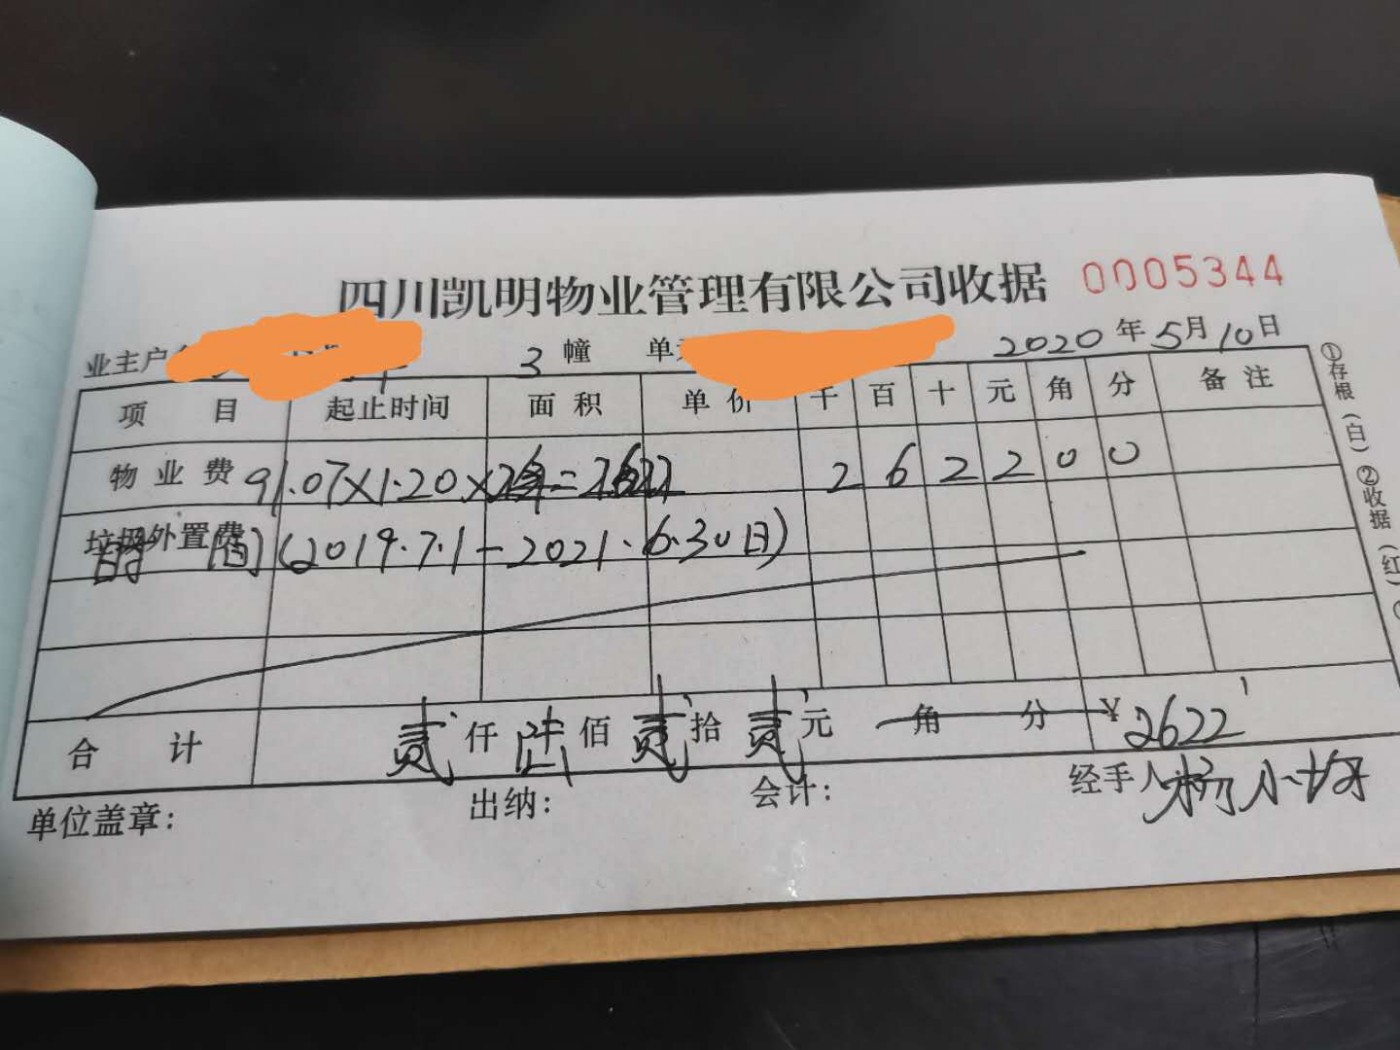 四川凯明物业管理有限公司收据 0005344
业主户 3 幢 单 2020年5月10日
项目 起止时间 面积 单价 千 百 十 元 角 分 备注
物业费 91.07×1.20× =2622 2 6 2 2 0 0
垃圾外置费
时间(2019.7.1-2021.6.30日)
合计 贰仟陆佰贰拾贰元 角 分 ¥2622
单位盖章: 出纳: 会计: 经手人
①存根(白)②收据(红)